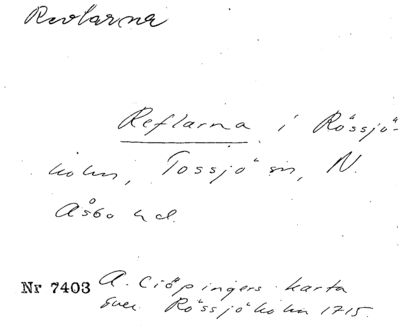 Revlarna
Reflarna i Rössjö-
holm, Tossjö sn, N.
Åsbo hd.
Nr 7403 A. Ciöpingers karta
över Rössjöholm 1715.